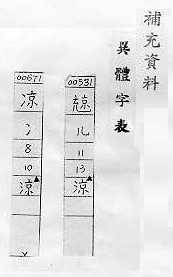 補充資料
異體字表
00531
儿
11
13
涼
00671
凉
冫
8
10
涼